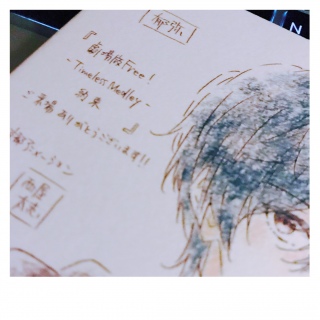 『劇場版Free!
-Timeless Medley-
約束』
ご来場ありがとうございます!!
都アニメーション
西屋
太志
N